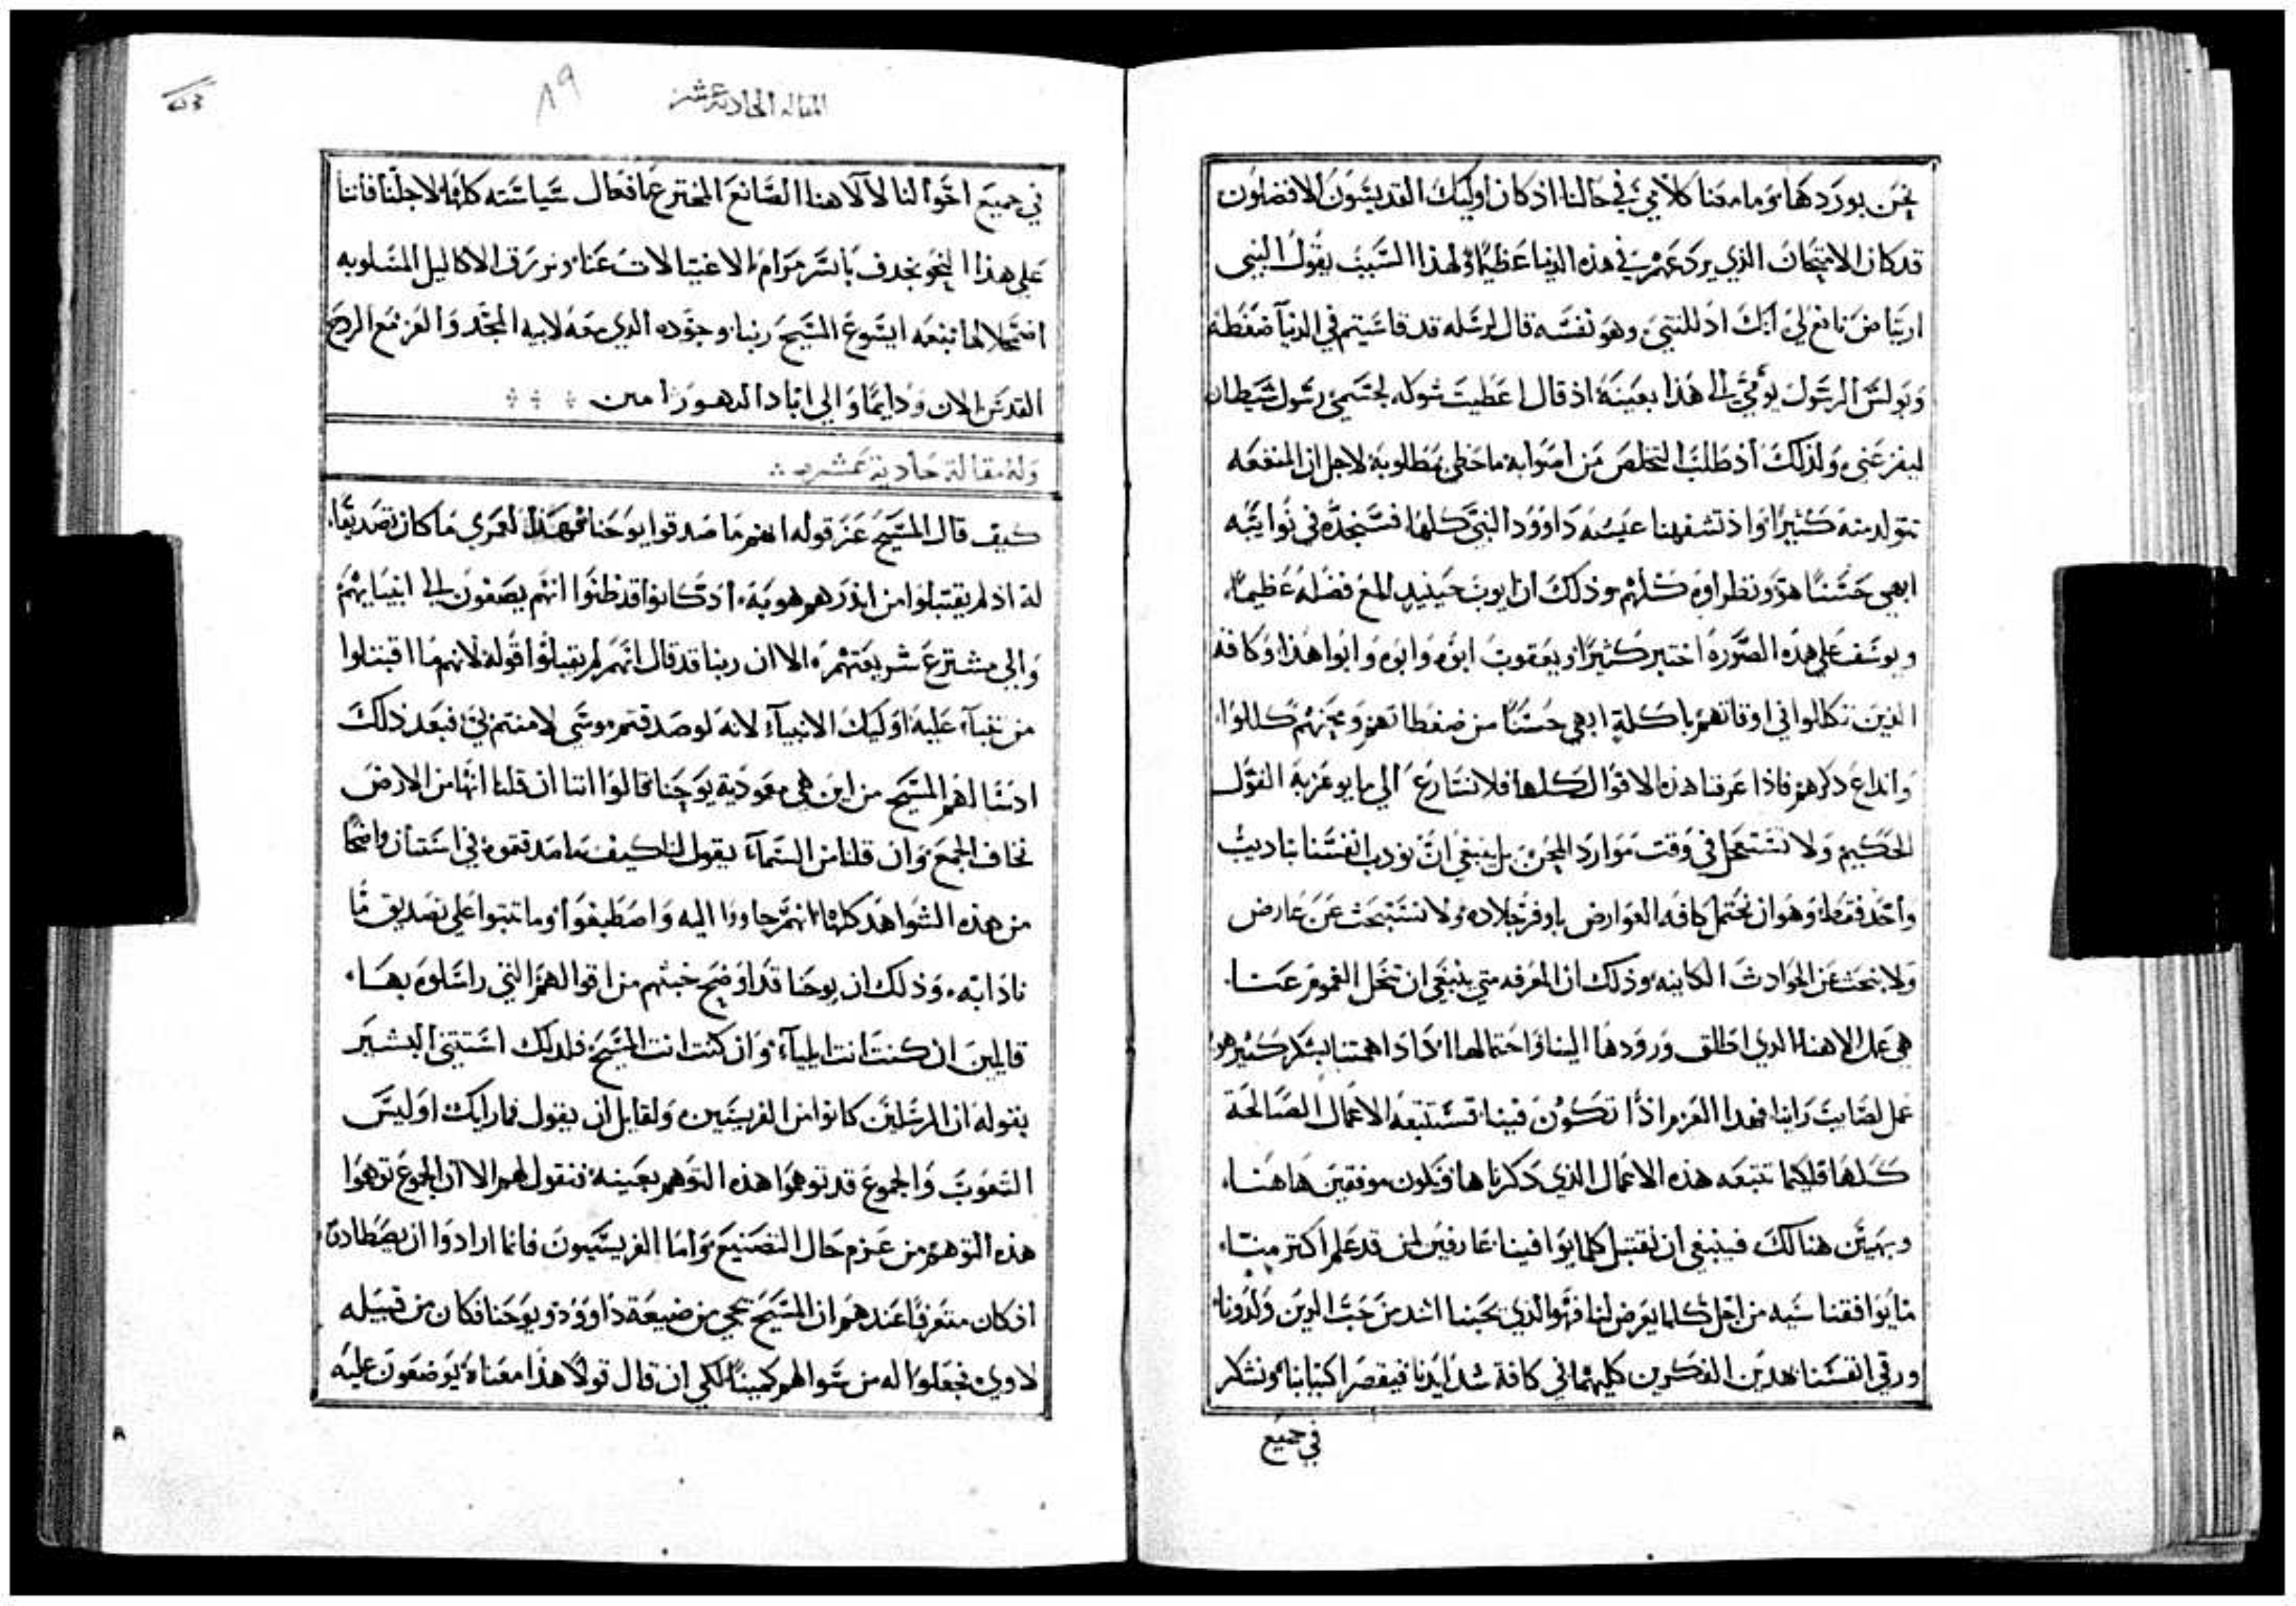 نحن بوردها وما معنا كلامي في حالنا اذ كان اوليك القديسون الافضلون
قد كان الامتحان الذي يرد عهم في هذه الدنيا عظيمًا ولهذا السبب يقول النبي
ارتياض نافع لي انك اذللتني وهو نفسه قال لرسله قد قاسيتم في الدنيا ضغطه
وبولس الرسول يومي الى هذا بعينه اذ قال اعطيت شوكه لجسمي رسول شيطان
ليفزعني ولذلك اذ طلب التخلص من اصوابه ما حظي بمطلوبه لاجل ان المنفعه
تتولد منه كثيرًا واذ تشفهنا عيشه داوود النبي كلها فسنجده في نوايبه
ابهي حسنًا هو ونظراوه كلهم وذلك ان ايوب حينيذ المع فضله عظيمًا
ويوسف علي هذه الصوره اختبر كثيرًا ويعقوب ابوه وابوه وابوا هذا وكافة
الذين تكالوا في اوقاتهم باكلة ابهي حسنًا من ضغطاتهم ومحنهم كللوا
وانداع ذكرهم فاذا عرفنا هذه الاقوال كلها فلا نسارع الي ما يوعز به القول
الحكيم ولا نستعجل في وقت موارد المحن بل ينبغي ان نودب انفسنا تاديب
واحد فقط وهو ان نحتمل كافه العوارض باوفر جلاده ولا نستبحث عن عارض
ولا نبحث عن الحوادث الكاينه وذلك ان المعرفه متي ينبغي ان تنحل الغموم عنا
هي عمل الاهنا الذي اطلق ورودها الينا واحتمالها اذًا اذا اهمتنا بشكر كثير هو
عمل لصايب راينا فهذا العزم اذًا تكون فينا تستتبعه الاعمال الصالحة
كلها فلكيما تتبعه هذه الاعمال الذي ذكرناها ونكون موفقين هاهنا
وبهيين هنالك فينبغي ان نقتبل كلما يوافينا عارفين ان قد علم اكثر منا
ما يوافقنا سيه من اجل كلما يعرض لنا فهو الذي يحبنا اشد من حب الدين ولدونا
ورقي انفسنا بهذين الفكرين كليهما في كافة شدايدنا فيقصر اكتيابنا ونشكر
في جميع
المقاله الحاديه عشر
٨٩
في جميع احوالنا لالاهنا الصانع المخترع ما فعال سياسته كلها لاجلنا فاننا
علي هذا النحو نخدف بايسر مرام الاغتيالات عنا ونرزق الاكاليل المسلوبه
اضمحلالها بنعمه ايسوع المسيح ربنا وجوده الذي معه لابيه المجد والعز مع الروح
القدس الان ودايمًا والي اباد الدهور امين
وله مقالة حادية عشر
كيف قال المسيح عز قوله انهم ما صدقوا يوحنا فهذا لعمري ما كان تصديقًا
له اذ لم يقتبلوا من انذرهم هو به اذ كانوا قد ظنوا انهم يصغون الي انبيايهم
والي مشترع شريعتهم الا ان ربنا قد قال انهم لم يقبلوا قوله لانهم ما اقتبلوا
من تنبأ عليه اوليك الانبياء لانه لو صدقتم موسي لامنتم بي فبعد ذلك
اذ سا لهم المسيح من اين هي معوذية يوحنا قالوا اننا ان قلنا انها من الارض
نخاف الجمع وان قلنا من السماء يقول لنا كيف ما صدقتموه في استبان واضحًا
من هذه الشواهد كلها انهم جاووا اليه واصطبغوا وما تبتوا علي تصديق ما
ناداتبه وذلك ان يوحنا قد اوضح خبثهم من اقوالهم التي راسلوه بها
قايلين ان كنت انت ايلياء وان كنت انت المسيح فلذلك استثني البشير
بقوله ان المرسلين كانوا من الفريسيين ولقايل ان يقول فما رايك اوليس
الشعوب والجموع قد توهموا هذه التوهم بعينه فنقول لهم الا ان الجموع توهموا
هذه التوهم من عزم حال التصنيع واما الفريسيون فانما ارادوا ان يصطادوه
اذ كان متعرفًا عندهم ان المسيح يجي من ضيعة داوود ويوحنا فكان من قبيله
لاوي نجعلوا له من سوالهم كمينًا لكي ان قال قولاً هذا معناه يوضعون عليه